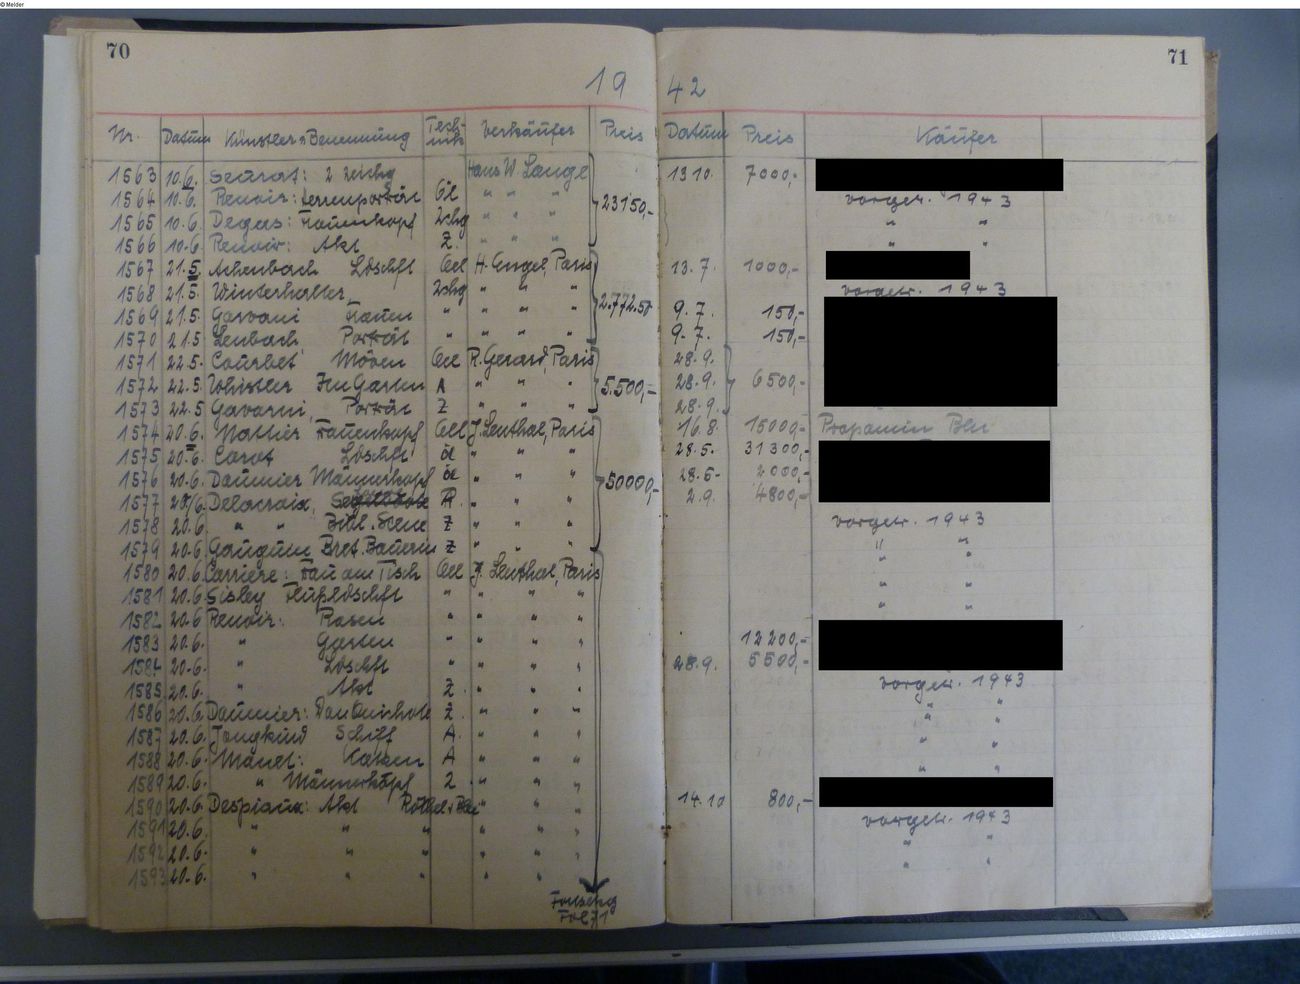 © Melder
70
71
19 42
Nr. Datum Künstler u Benennung Tech-nik Verkäufer Preis Datum Preis Käufer
1563 10.6. Seurat: 2 Zeichg Hans W. Lange 13 10. 7000,-
1564 10.6. Renoir: Herrenporträt Öl " " " 23150,- vorgetr. 1943
1565 10.6. Degas: Frauenkopf Zchg " " " " "
1566 10.6 Renoir: Akt Z. " " " " "
1567 21.5. Achenbach Ldschft Oel H. Engel, Paris 13.7. 1000,-
1568 21.5. Winterhalter Zchg " " " vorgetr. 1943
1569 21.5. Gavarni Frauen " " " " 2.772.50 9.7. 150,-
1570 21.5 Lenbach Porträt " " " " 9.7. 150,-
1571 22.5. Courbet Möven Oel R. Gerard, Paris 28.9.
1572 22.5. Whistler Im Garten A " " " 5.500,- 28.9. 6500,-
1573 22.5 Gavarni, Porträt Z " " " 28.9.
1574 20.6. Nattier Frauenkopf Oel J. Leuthal, Paris 16.8. 15000,-
1575 20.6. Corot Ldschft öl " " " 28.5. 31300,-
1576 20.6. Daumier Männerkopf öl " " " 50000,- 28.5- 2000,-
1577 20/6 Delacroix, A. " " " 2.9. 4800,-
1578 20.6. " " Bibl. Scene Z " " " vorgetr. 1943
1579 20.6 Gauguin Bret. Bäuerin Z " " " " "
1580 20.6 Carriere: Frau am Tisch Oel J. Leuthal, Paris " "
1581 20.6 Sisley Flußldschft " " " " " "
1582 20.6 Renoir: Rosen " " " " " "
1583 20.6. " Garten " " " " 12200,-
1584 20.6. " Ldschft " " " " 28.9. 5500,-
1585 20.6. " Akt Z. " " " vorgetr. 1943
1586 20.6 Daumier: Don Quichote Z. " " " " "
1587 20.6. Jongkind Schiff A. " " " " "
1588 20.6. Manet: Katzen A " " " " "
1589 20.6. " Männerkopf Z " " "
1590 20.6 Despiaux: Akt Rötel + Blei " " 14.10 800,-
1591 20.6. " " " " " " vorgetr. 1943
1592 20.6. " " " " " " " "
1593 20.6. " " " " " " " "
Fol 71